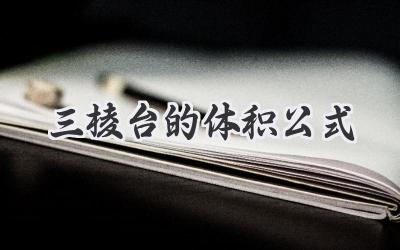 三棱台的体积公式